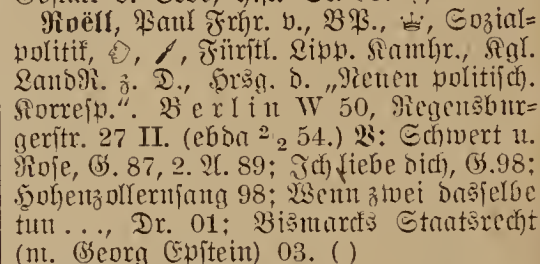 Roëll, Paul Frhr. v., BP., Sozial-
politik, Fürstl. Lipp. Kamhr., Kgl.
LandR. z. D., Hrsg. d. „Neuen politisch.
Korresp.“. Berlin W 50, Regensbur-
gerstr. 27 II. (ebda 2/2 54.) V: Schwert u.
Rose, G. 87, 2. A. 89; Ich liebe dich, G. 98;
Hohenzollernsang 98; Wenn zwei dasselbe
tun ..., Dr. 01; Bismarcks Staatsrecht
(m. Georg Epstein) 03. ( )